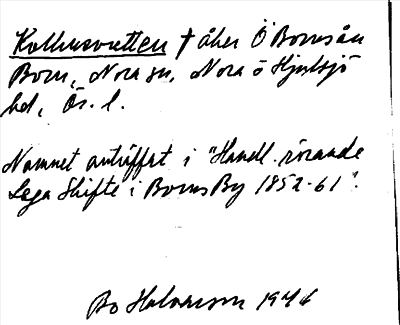 Kolhusvretten † åker Ö Borns ån
Born, Nora sn, Nora o Hjulsjö
hd, Ör. l.
Namnet anträffat i "Handl. rörande
Lega Skifte i Borns By 1852-61".
Bo Halvarson 1946